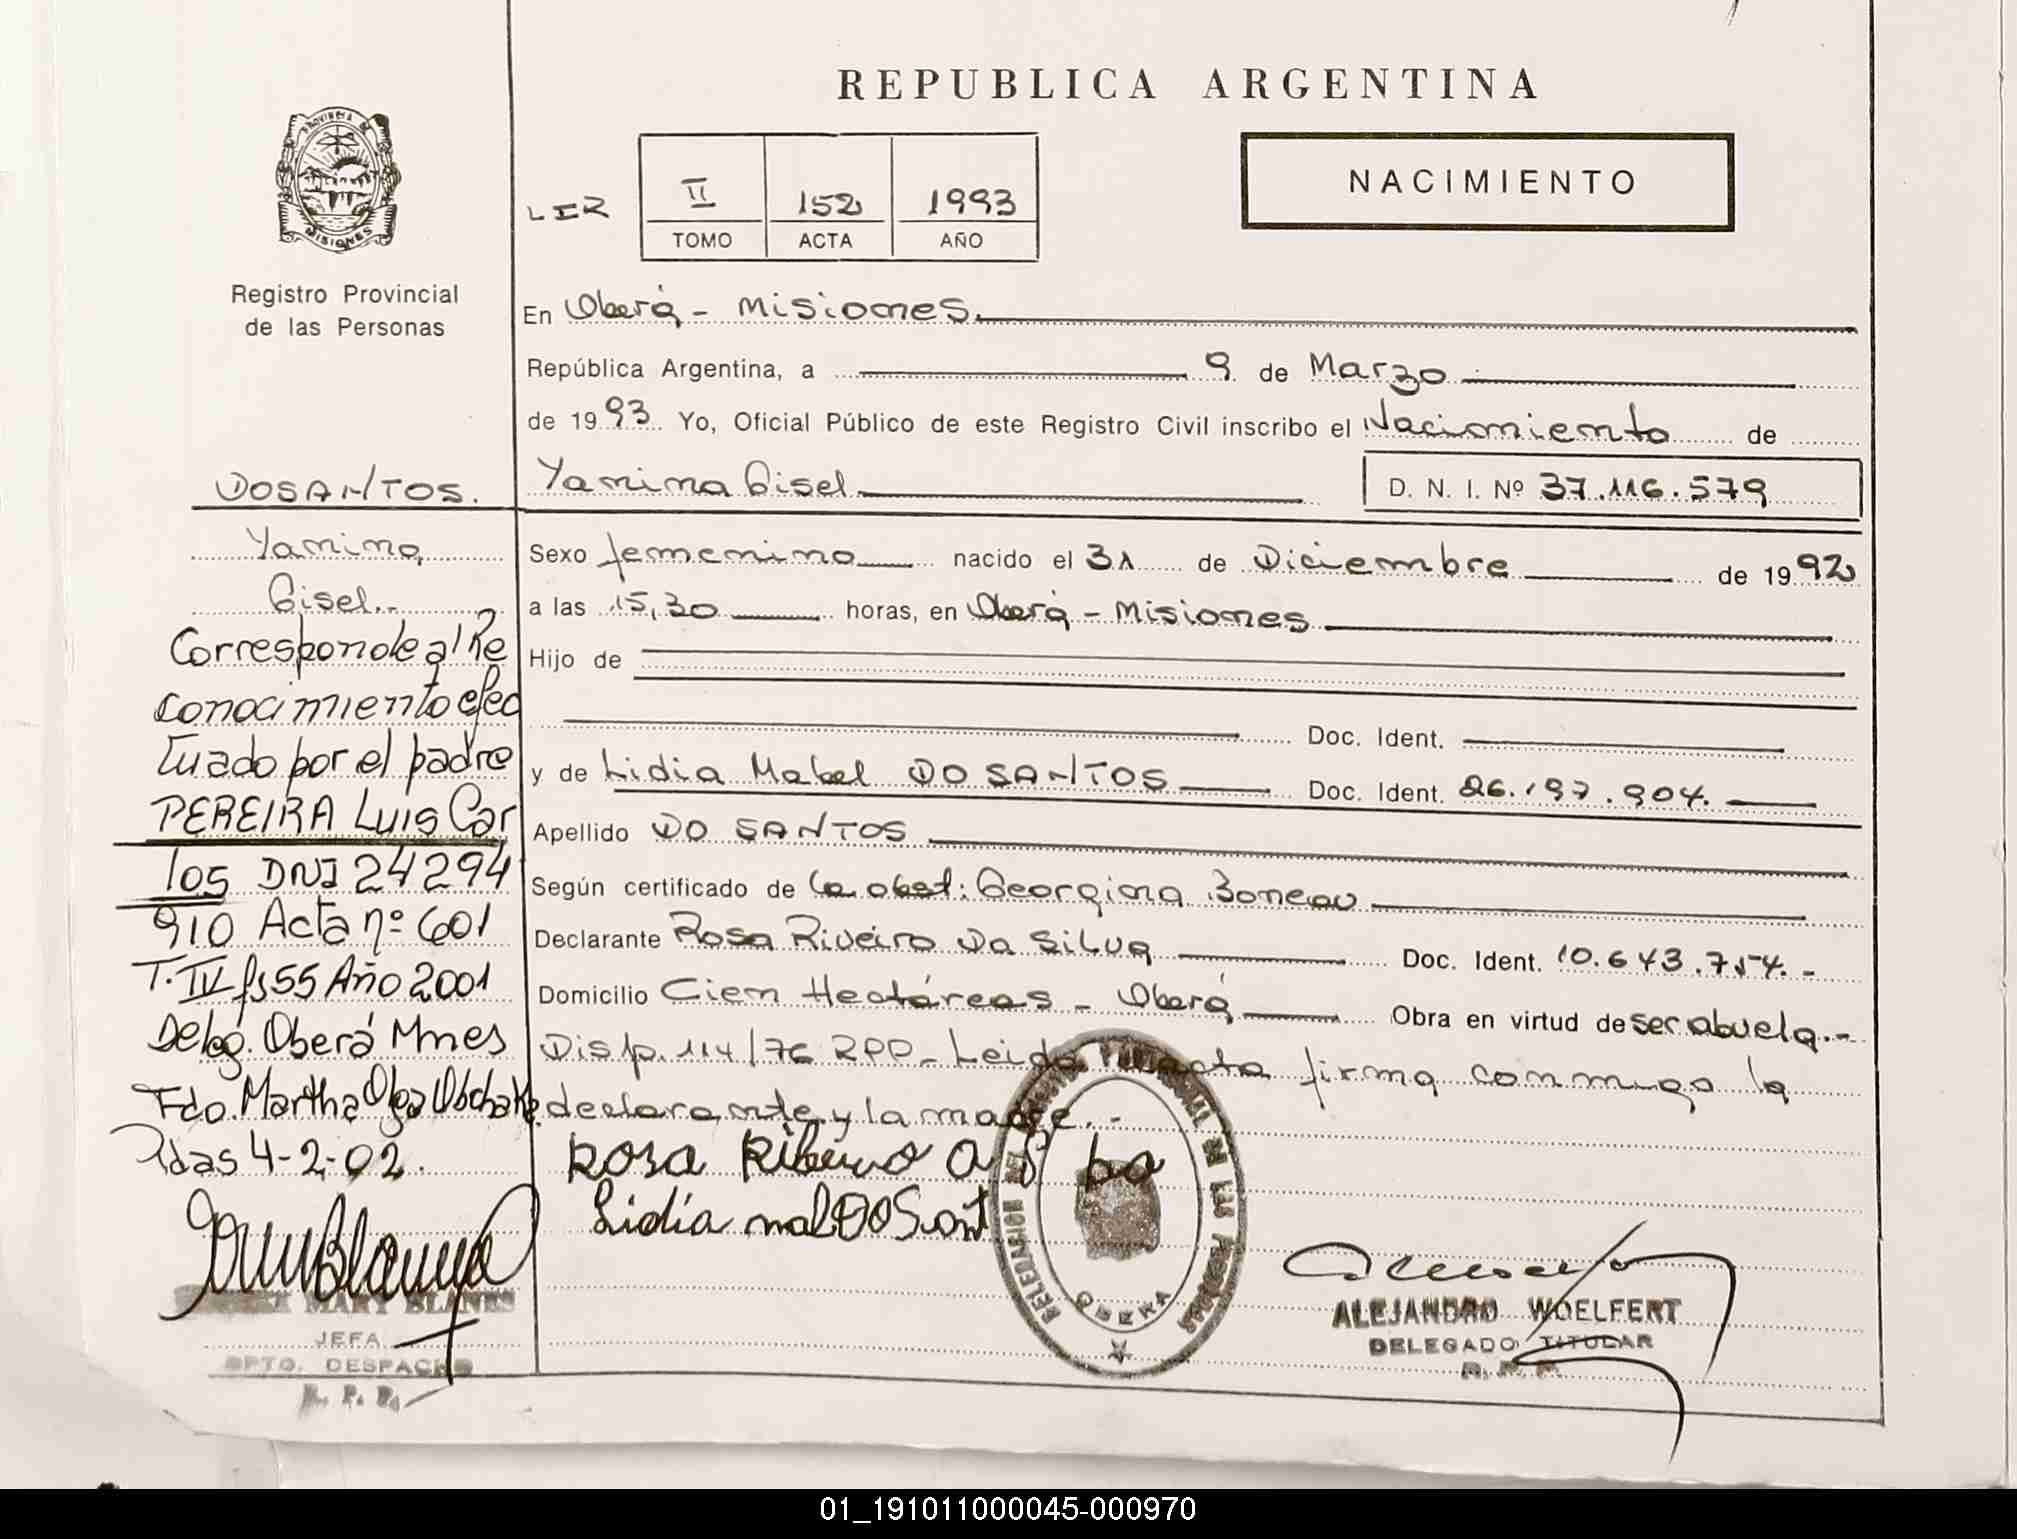 REPUBLICA ARGENTINA
NACIMIENTO
PROVINCIA DE
MISIONES
Registro Provincial
de las Personas
II 152 1993
TOMO ACTA AÑO
En Oberá - Misiones.
República Argentina, a 9 de Marzo
de 1993 Yo, Oficial Público de este Registro Civil inscribo el Nacimiento de
Yanina Gisel D. N. I. Nº 37.116.579
Sexo femenino nacido el 31 de Diciembre de 1992
a las 15,30 horas, en Oberá - Misiones
Hijo de
Doc. Ident.
y de Lidia Mabel DO SANTOS Doc. Ident. 26.197.904.
Apellido DO SANTOS
Según certificado de la obst: Georgina Boneau
Declarante Rosa Riveiro Da Silva Doc. Ident. 10.643.754.-
Domicilio Cien Hectáreas - Oberá Obra en virtud de ser abuela.-
Disp. 114/76 RPP - Leida acta firma conmigo la
declarante y la madre.-
Rosa Ribeiro
Lidia
DOSANTOS.
Yanina
Gisel.-
Corresponde al Re
conocimiento efec
tuado por el padre
PEREIRA Luis Car
los DNI 24294
910 Acta nº 601
T. IV fs 55 Año 2001
Deleg. Oberá Mnes
Fdo. Martha Olga
Pdas 4-2-02.
MARY BLANES
JEFA
DPTO. DESPACHO
R. P. P.
OBERA
ALEJANDRO WOELFERT
DELEGADO TITULAR
R. P. P.
01_191011000045-000970